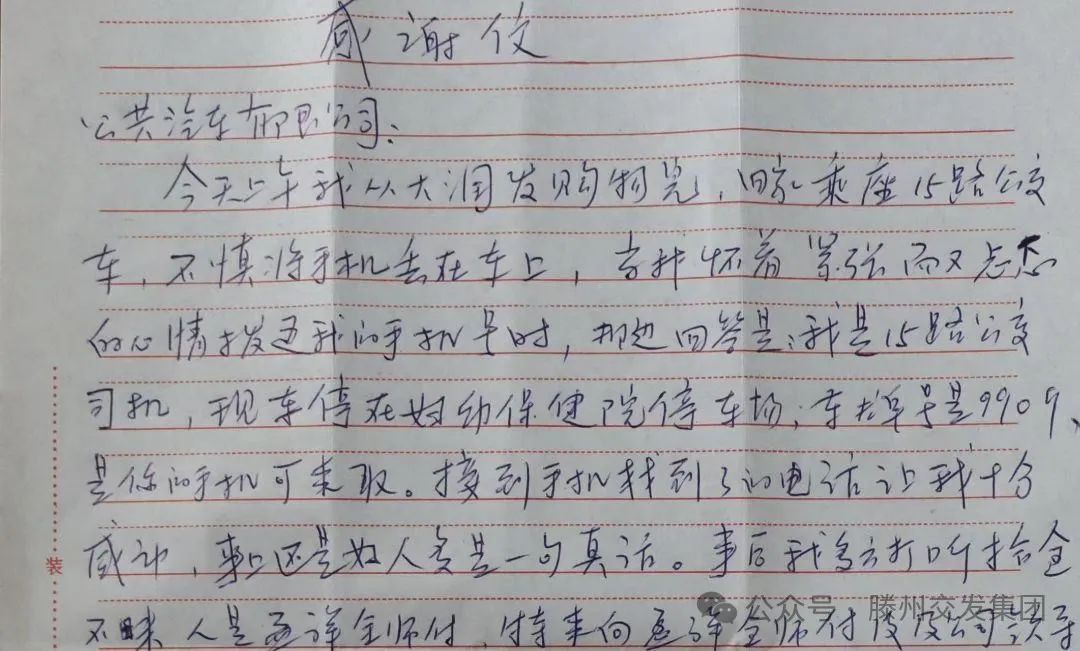 感谢信
公共汽车有限公司:
今天上午我从大润发购物完,回家乘座15路公交
车,不慎将手机丢在车上,当我怀着紧张而又忐忑
的心情拨通我的手机号时,那边回答是:我是15路公交
司机,现车停在妇幼保健院停车场,车牌号是9909、
是你的手机可来取。接到手机找到了的电话让我十分
感动,世上还是好人多是一句真话。事后我多方打听拾金
不昧人是 详金师付,特来向 详金师付及及公司领导
装
公众号·滕州交发集团